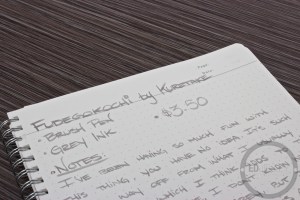 FUDEGOKOCHI by KURETAKE
- BRUSH PEN
- $3.50
- GREY INK
- NOTES:
I'VE BEEN HAVING SO MUCH FUN WITH
THIS THING, YOU HAVE NO IDEA. IT'S SUCH
WAY OFF FROM WHAT I
WHICH I DON'T KNOW